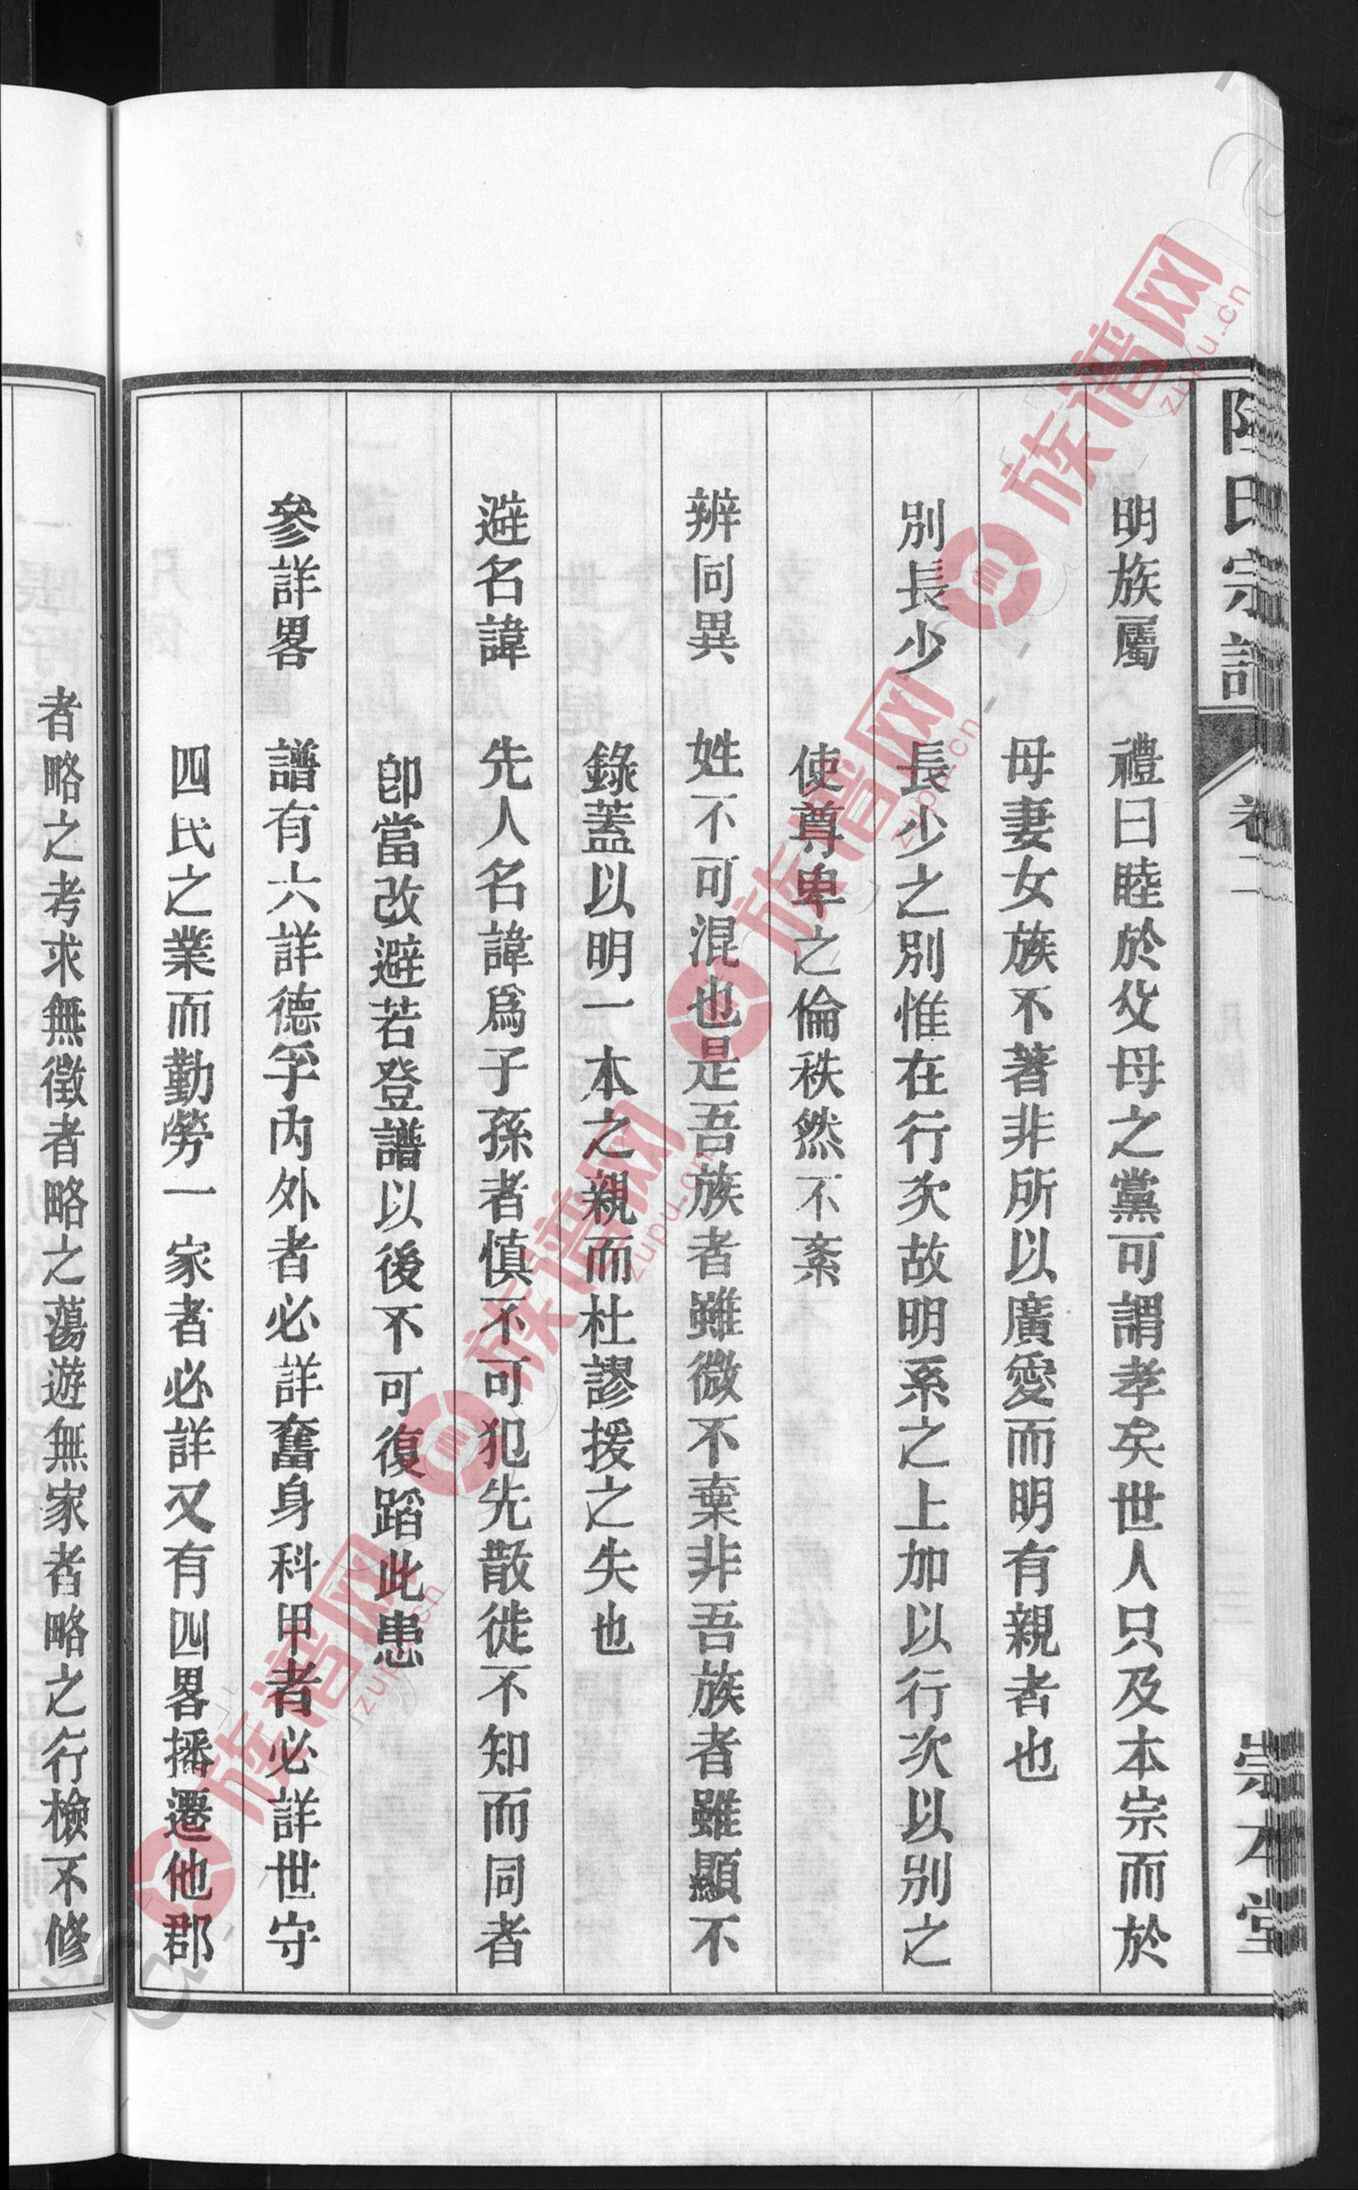 氏宗譜 卷二 崇本堂
明族屬 禮曰睦於父母之黨可謂孝矣世人只及本宗而於
母妻女族不著非所以廣愛而明有親者也
別長少 長少之別惟在行次故明系之上加以行次以別之
使尊卑之倫秩然不紊
辨同異 姓不可混也是吾族者雖微不棄非吾族者雖顯不
錄蓋以明一本之親而杜謬援之失也
避名諱 先人名諱爲子孫者慎不可犯先散徙不知而同者
卽當改避若登譜以後不可復蹈此患
參詳畧 譜有六詳德孚內外者必詳奮身科甲者必詳世守
四民之業而勤勞一家者必詳又有四畧播遷他郡
者略之考求無徵者略之蕩遊無家者略之行檢不修
族谱网 zupu.cn
族谱网 zupu.cn
族谱网 zupu.cn
族谱网 zupu.cn